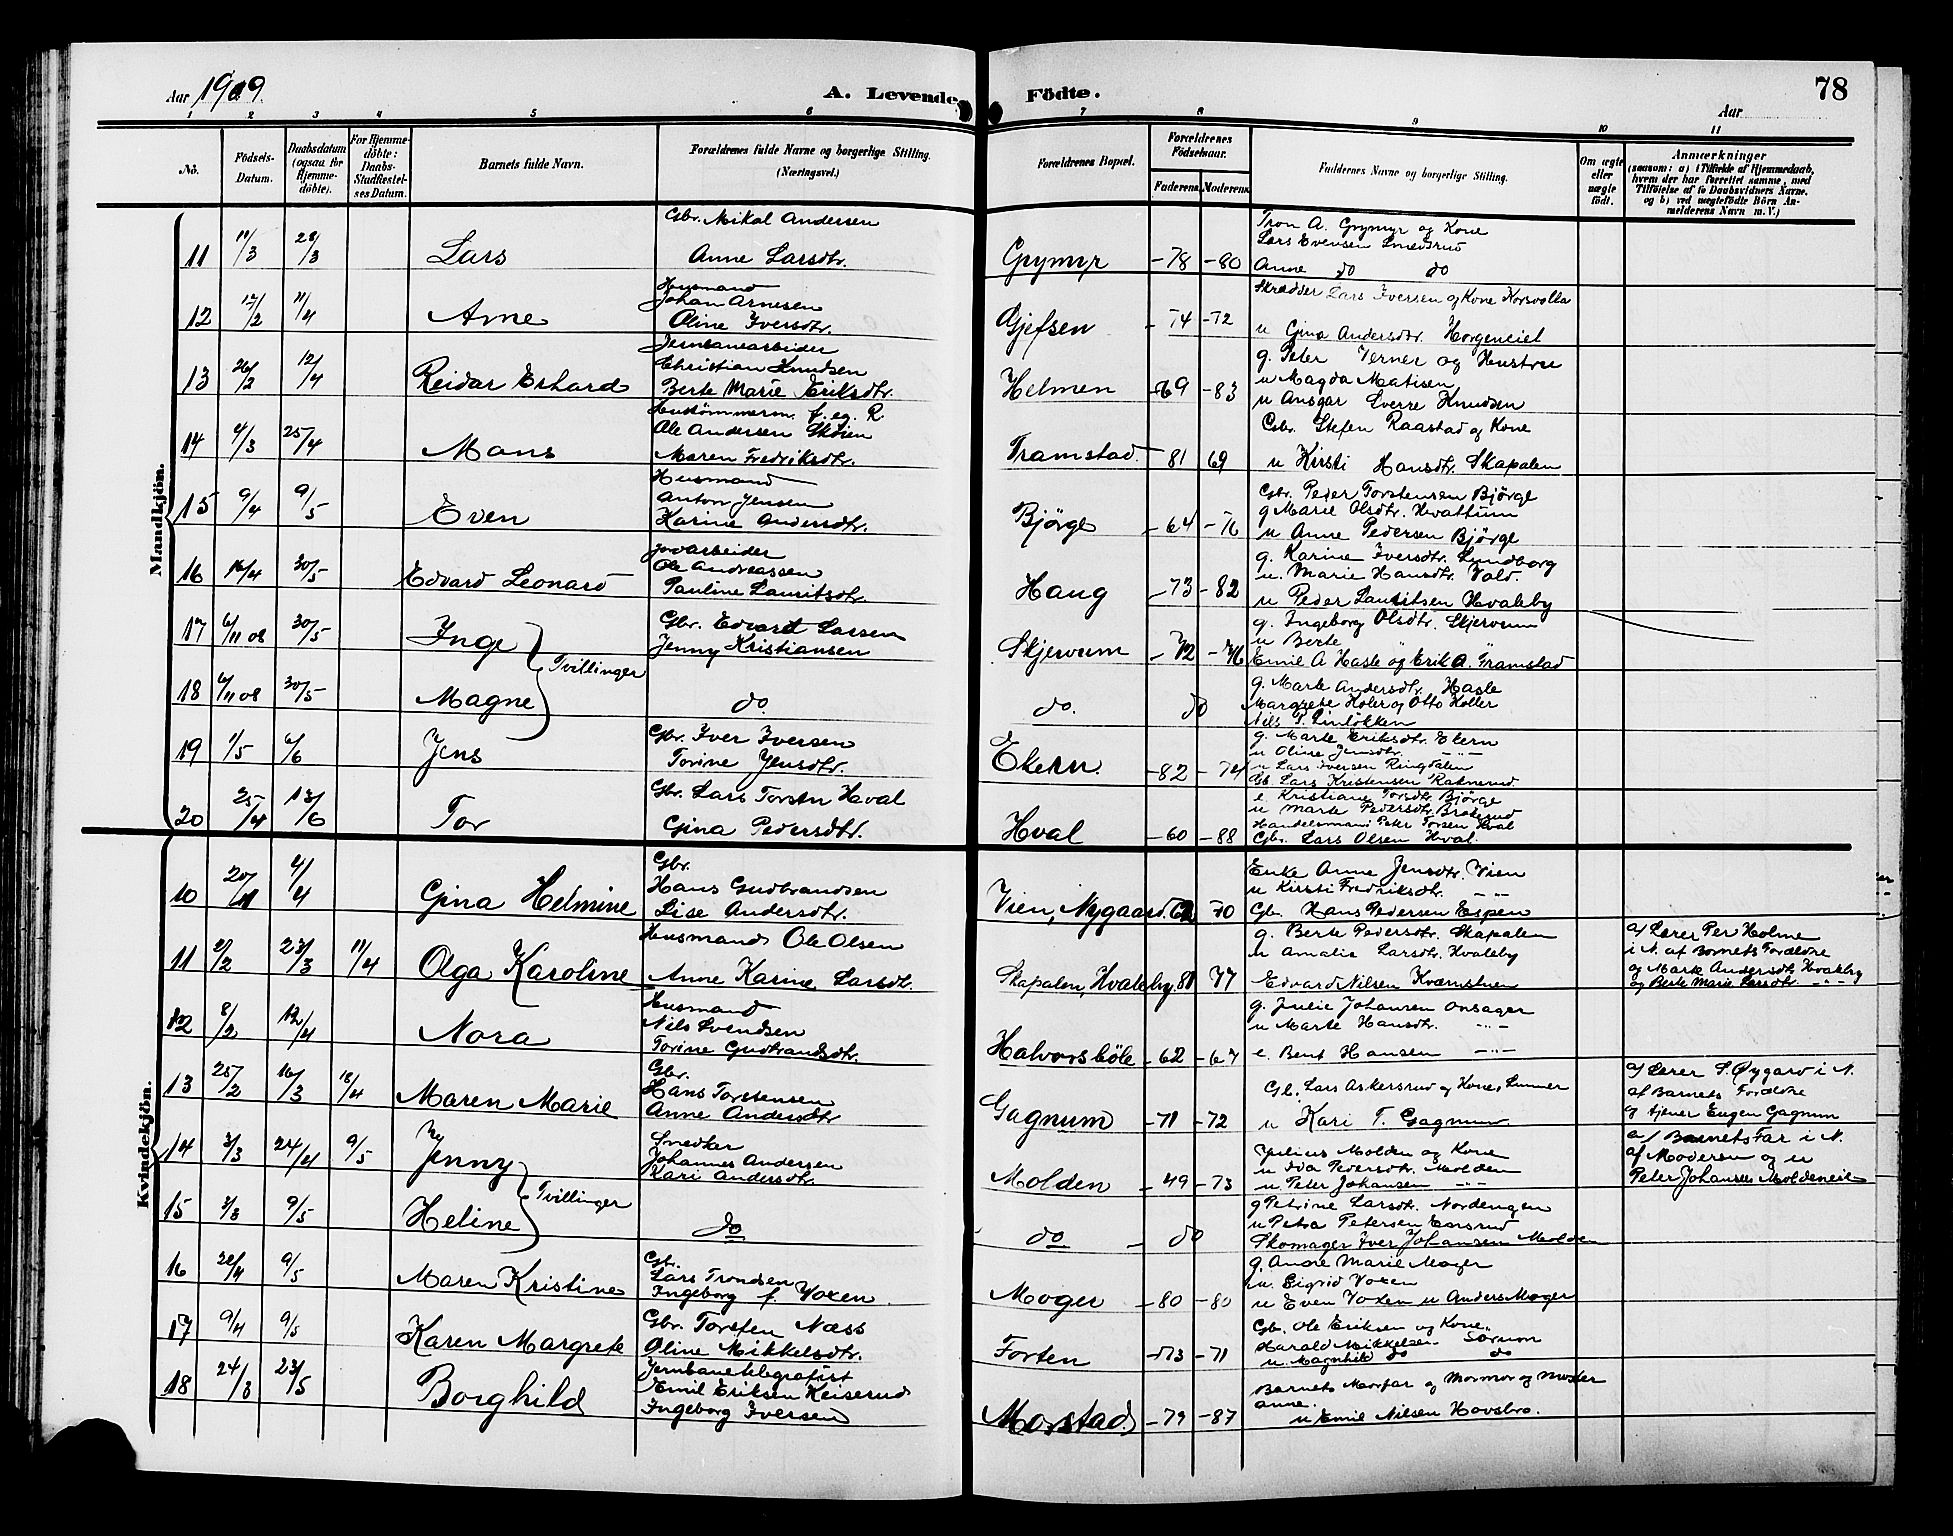 78
Aar 1909.
A. Levende Födte.
Aar
1 2 3 4 5 6 7 8 9 10 11
No.
Födsels-Datum.
Daabsdatum (ogsaa for Hjemmedöbte).
For Hjemmedöbte: Daabs-Stadfæstelses Datum.
Barnets fulde Navn.
Forældrenes fulde Navne og borgerlige Stilling. (Næringsvei.)
Forældrenes Bopæl.
Forældrenes Födselsaar.
Faderens. Moderens.
Faddernes Navne og borgerlige Stilling.
Om ægte eller uægte födt.
Anmærkninger
(saasom: a) i Tilfælde af Hjemmedaab, hvem der har forrettet samme, med Tilföielse af to Daabsvidners Navne, og b) ved uægtefödte Börn Anmelderens Navn m. V.)
Mandkjön.
11 11/3 28/3 Lars
Gbr. Mikal Andersen
Anne Larsdtr.
Grymyr -78 -80
Tron A. Grymyr og Kone
Lars Evensen Smedsrud
Anne do do
12 17/2 11/4 Arne
Husmand
Johan Arnesen
Oline Iversdtr.
Gjefsen -74 -72
Skrædder Lars Iversen og Kone Korsvolla
u Gina Andersdtr. Horgeneiet
13 26/2 12/4 Reidar Erhard
Jernbanearbeider
Christian Knudsen
Berte Marie Eriksdtr.
Helmen -69 -83
g. Peter Verner og Hustru
u Magda Matisen
u Ansgar Sverre Knudsen
14 4/3 25/4 Mons
Hustömmerm. f. eg. R
Ole Andersen Skoien
Maren Fredriksdtr.
Tramstad -81 69
Gbr. Stefen Raastad og Kone
u Kirsti Hansdtr. Skapalen
15 9/4 9/5 Even
Husmand
Anton Jensen
Karine Andersdtr.
Bjørge -64 -76
Gbr. Peder Torstensen Bjørge
g Marie Olsdtr. Hvattum
u Anne Pedersen Bjørge
16 16/4 30/5 Edvard Leonard
Jordarbeider
Ole Andreassen
Pauline Lauritsdtr.
Haug -73 -82
g. Karine Iversdtr. Lundborg
u. Marie Hansdtr. Vold.
u Peder Lauritsen Hvaleby
17 6/11 08 30/5 Inge
Tvillinger
Gbr. Edvard Larsen
Jenny Kristiansen
Skjervum -72 -76
g. Ingeborg Olsdtr. Skjervum
u Berte "
Emil A Hasle og Erik A. Tramstad
18 6/11 08 30/5 Magne
do.
do. do
g. Marte Andersdtr. Hasle
Margrete Koler og Otto Koller
Nils P. Linløkken
19 1/5 6/6 Jens
Gbr. Iver Iversen
Torine Jensdtr.
Ekern. -82 -74
g. Marte Eriksdtr. Ekern
u Oline Jensdtr. -"-
u Lars Iversen Ringdalen
Gb. Lars Kristensen Ratnerud.
20 25/4 13/6 Tor
Gbr. Lars Torsten Hval
Gina Pedersdtr.
Hval -60 -88
e Kristiane Torsdtr. Bjørge
u Marte Pedersdtr. Braterud
Handelsmand Peter Torsen Hval
Gbr. Lars Olsen Hval.
Kvindekjön.
10 20/11 4/4 Gina Helmine
Gbr.
Hans Gudbrandsen
Lise Andersdtr.
Vien, Nygaard. 62 70
Enke Anne Jensdtr. Vien
u Kirsti Fredriksdtr. -"-
Gb. Hans Pedersen Espen
11 2/2 23/3 11/4 Olga Karoline
Husmand Ole Olsen
Anne Karine Larsdtr.
Skapalen, Hvaleby 81 77
g. Berte Pedersdtr. Skapalen
u Amalie Larsdtr. Hvaleby
Edvard Nilsen Kværnstuen
af Lærer Per Holme
i N. af Barnets Forældre
og Marte Andersdtr. Hvaleby
og Berte Marie Larsdtr. -"-
12 8/2 12/4 Nora
Husmand
Nils Svendsen
Torine Gudbrandsdtr.
Halvorsbøle -62 -67
g. Julie Johansen Onsager
u Marte Hansdtr. -"-
e. Bent Hansen -"-
13 25/2 16/3 18/4 Maren Marie
Gbr.
Hans Torstensen
Anne Andersdtr
Gagnum -71 -72
Gb. Lars Askersrud og Kone, Lunner
u Kari T. Gagnum
af Lærer S. Øygard i N.
af Barnets Forældre
og tjener Eugen Gagnum
14 3/3 24/4 9/5 Jenny
Tvillinger
Smedker
Johannes Andersen
Kari Andersdtr.
Molden -49 -73
Julius Molden og Kone
u Ida Pedersdtr. Molden
u Peter Johansen -"-
af Barnets Far i N.
af Moderen og u
Peter Johansen Moldeneiet
15 3/3 9/5 Heline
do
do - do
g Petrine Larsdtr. Nordengen
u Petra Petersen Ensrud
Skomager Iver Johansen Molden
16 20/4 9/5 Maren Kristine
Gb.
Lars Trondsen
Ingeborg f. Voxen
Moger -80 -80
g. Andre Marie Moger
u. Sigrid Voxen
u Even Voxen u Anders Moger
17 9/4 9/5 Karen Margrete
Gbr. Torsten Næss
Oline Mikkelsdtr.
Forten -73 -71
Gb. Ole Eriksen og Kone.
Harald Mikkelsen Sørum
u. Magnhild do do
18 24/3 23/5 Borghild
Jernbanetelegrafist
Emil Eriksen Keiserud
Ingeborg Iversen
Morstad -79 -87
Barnets Morfar og Mormor og Moster
Anne.
u Emil Nilsen Hovsbro.